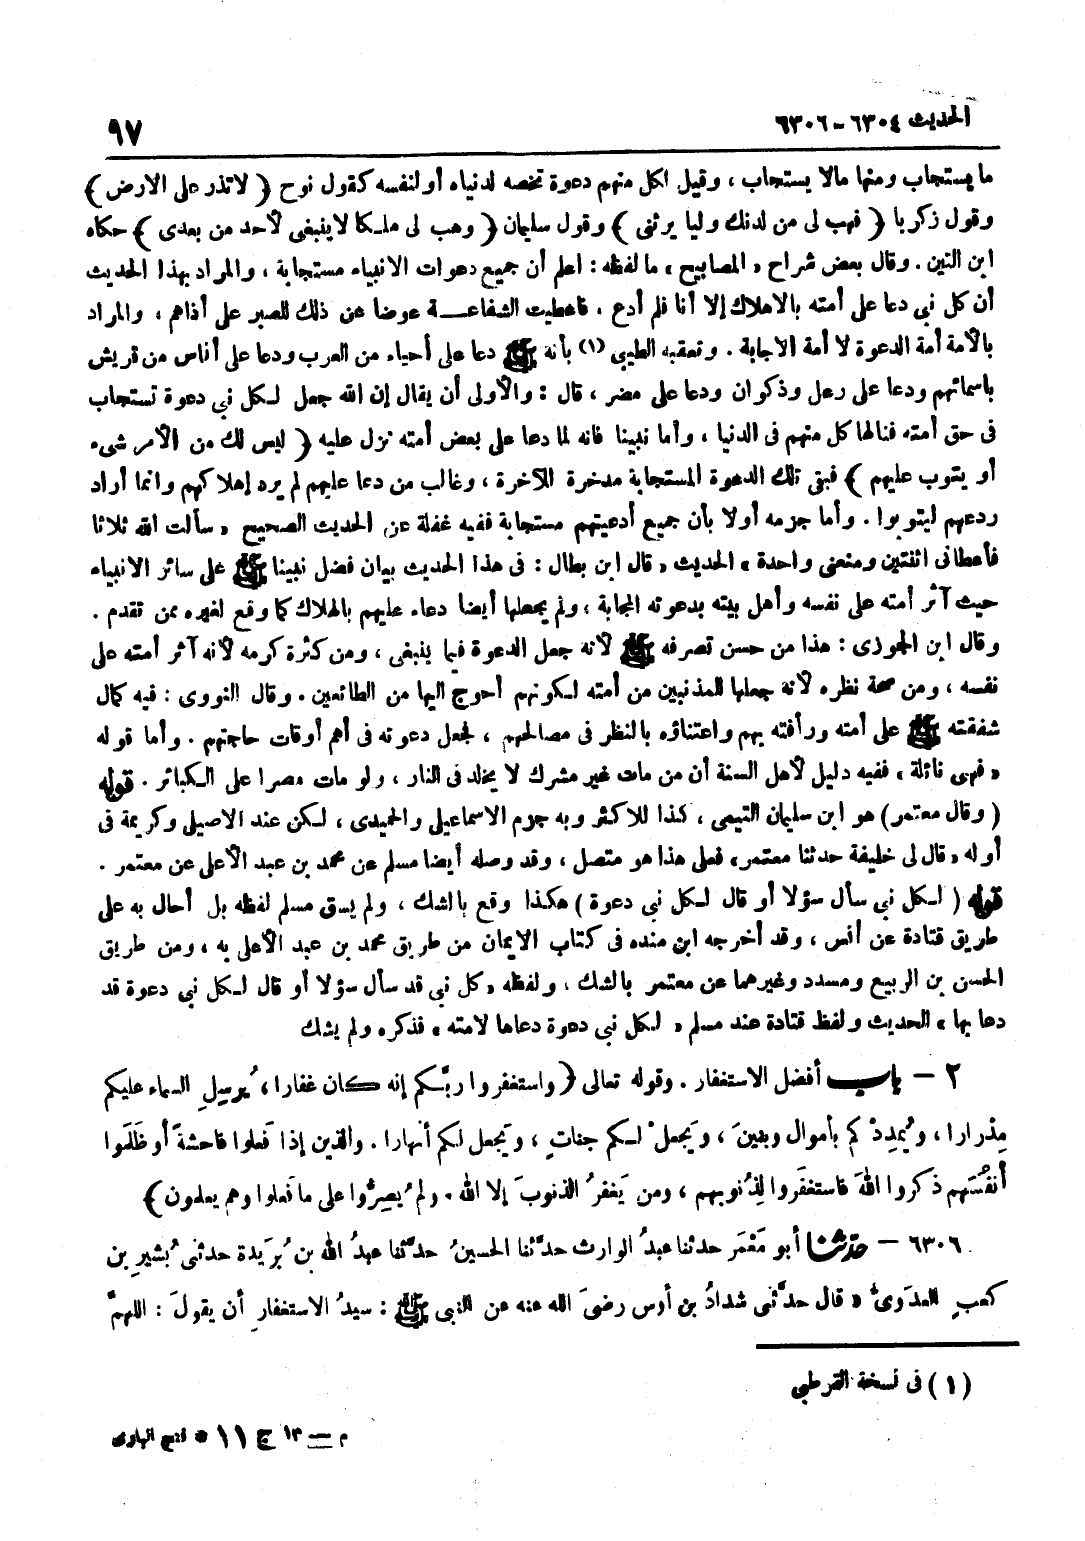 الحديث ٦٣٠٤ - ٦٣٠٦
٩٧
ما يستجاب ومنها مالا يستجاب ، وقيل لكل منهم دعوة تخصه لدنياه أو لنفسه كقول نوح ﴿ لا تذر على الارض ﴾
وقول زكريا ﴿ فهب لى من لدنك وليا يرثنى ﴾ وقول سليمان ﴿ وهب لى ملكا لا ينبغى لأحد من بعدى ﴾ حكاه
ابن التين . وقال بعض شراح « المصابيح » ما لفظه : اعلم أن جميع دعوات الانبياء مستجابة ، والمراد بهذا الحديث
أن كل نبى دعا على أمته بالاهلاك إلا أنا فلم أدع ، فأعطيت الشفاعة عوضا عن ذلك للصبر على أذاهم ، والمراد
بالأمة أمة الدعوة لا أمة الاجابة . وتعقبه الطيبى (١) بأنه ﷺ دعا على أحياء من العرب ودعا على أناس من قريش
باسمائهم ودعا على رعل وذكوان ودعا على مضر ، قال : والأولى أن يقال إن الله جعل لكل نبى دعوة تستجاب
فى حق أمته فنالها كل منهم فى الدنيا ، وأما نبينا فانه لما دعا على بعض أمته نزل عليه ﴿ ليس لك من الأمر شىء
أو يتوب عليهم ﴾ فبقى تلك الدعوة المستجابة مدخرة للآخرة ، وغالب من دعا عليهم لم يرد إهلاكهم وانما أراد
ردعهم ليتوبوا . وأما جزمه أولا بأن جميع أدعيتهم مستجابة ففيه غفلة عن الحديث الصحيح « سألت الله ثلاثا
فأعطانى اثنتين ومنعنى واحدة » الحديث « قال ابن بطال : فى هذا الحديث بيان فضل نبينا ﷺ على سائر الانبياء
حيث آثر أمته على نفسه وأهل بيته بدعوته المجابة ، ولم يجعلها أيضا دعاء عليهم بالهلاك كما وقع لغيره ممن تقدم .
وقال ابن الجوزى : هذا من حسن تصرفه ﷺ لأنه جعل الدعوة فيما ينبغى ، ومن كثرة كرمه لأنه آثر أمته على
نفسه ، ومن صحة نظره لأنه جعلها للمذنبين من أمته لكونهم أحوج اليها من الطائعين . وقال النووى : فيه كمال
شفقته ﷺ على أمته ورأفته بهم واعتناؤه بالنظر فى مصالحهم ، فجعل دعوته فى أهم أوقات حاجتهم . وأما قوله
« فهى نائلة » ففيه دليل لأهل السنة أن من مات غير مشرك لا يخلد فى النار ، ولو مات مصرا على الكبائر . قوله
( وقال معتمر ) هو ابن سليمان التيمى ، كذا للاكثر وبه جزم الاسماعيلى والحميدى ، لكن عند الاصيلى وكريمة فى
أوله « قال لى خليفة حدثنا معتمر» فعلى هذا هو متصل ، وقد وصله أيضا مسلم عن محمد بن عبد الأعلى عن معتمر .
قوله ( لكل نبى سأل سؤلا أو قال لكل نبى دعوة ) هكذا وقع بالشك ، ولم يسق مسلم لفظه بل أحال به على
طريق قتادة عن أنس ، وقد أخرجه ابن منده فى كتاب الايمان من طريق محمد بن عبد الأعلى به ، ومن طريق
الحسن بن الربيع ومسدد وغيرهما عن معتمر بالشك ، ولفظه « كل نبى قد سأل سؤلا أو قال لكل نبى دعوة قد
دعا بها » الحديث ولفظ قتادة عند مسلم « لكل نبى دعوة دعاها لامته » فذكره ولم يشك
٢ - باب أفضل الاستغفار . وقوله تعالى ﴿ واستغفروا ربَّكم إنه كان غفارا ، يُرسِلِ السماء عليكم
مِدرارا ، ويُمدِدْ كم بأموال وبنينَ ، ويَجعلْ لكم جناتٍ ، ويَجعل لكم أنهارا . والذين إذا فَعلوا فاحشةً أو ظَلَموا
أنفُسَهم ذكروا اللهَ فاستغفَروا لِذُنوبهم ، ومن يَغفرُ الذنوبَ إلا الله . ولم يُصِرُّوا على ما فَعلوا وهم يعلمون ﴾
٦٣٠٦ - حدّثنا أبو مَعْمَر حدثنا عبدُ الوارث حدَّثنا الحسينُ حدَّثنا عبدُ الله بن بُرَيدة حدثنى بُشَيرِ بن
كعبٍ العدَوىُّ « قال حدَّثنى شدادُ بن أوس رضىَ الله عنه عن النبى ﷺ : سيدُ الاستغفارِ أن يقولَ : اللهمَّ
(١) فى نسخة القرطبى
م — ١٣ ج ١١ * فتح البارى